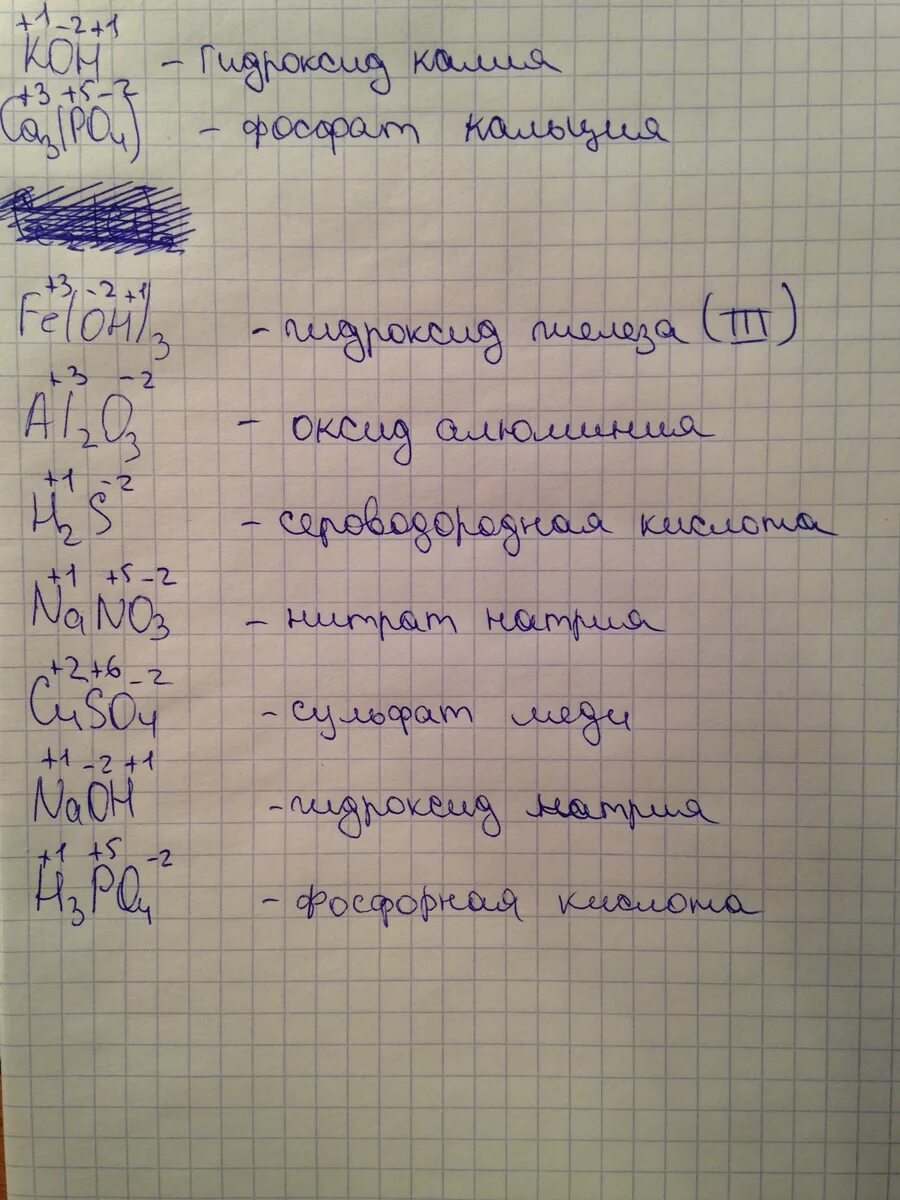 +1 -2 +1
KOH - Гидроксид калия
+3 +5 -2
Ca₃(PO₄) - фосфат кальция
+3 -2 +1
Fe(OH)₃ - гидроксид железа (III)
+3 -2
Al₂O₃ - оксид алюминия
+1 -2
H₂S - сероводородная кислота
+1 +5 -2
NaNO₃ - нитрат натрия
+2 +6 -2
CuSO₄ - сульфат меди
+1 -2 +1
NaOH - гидроксид натрия
+1 +5 -2
H₃PO₄ - фосфорная кислота